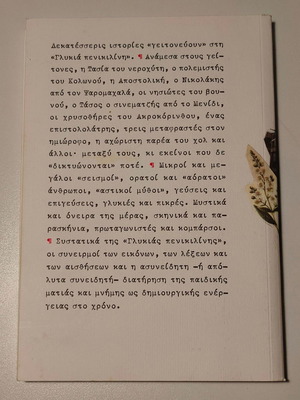 Δεκατέσσερις ιστορίες «γειτονεύουν» στη
«Γλυκιά πενικιλίνη». ¶ Ανάμεσα στους γεί-
τονες, η Τασία του νεροχύτη, ο πολεμιστής
του Κολωνού, η Αποστολική, ο Νικολάκης
από τον Ψαρομαχαλά, οι νησιώτες του βου-
νού, ο Τάσος ο σινεματζής από το Μενίδι,
οι χρυσοθήρες του Ακροκόρινθου, ένας
επιστολολάτρης, τρεις μεταφραστές στον
ημιώροφο, η αχώριστη παρέα του χολ και
άλλοι· μεταξύ τους, κι εκείνοι που δε
«δικτυώνονται» ποτέ. ¶ Μικροί και με-
γάλοι «σεισμοί», ορατοί και «αόρατοι»
άνθρωποι, «αστικοί μύθοι», γεύσεις και
επιγεύσεις, γλυκιές και πικρές. Μυστικά
και όνειρα της μέρας, σκηνικά και πα-
ρασκήνια, πρωταγωνιστές και κομπάρσοι.
¶ Συστατικά της «Γλυκιάς πενικιλίνης»,
οι συνειρμοί των εικόνων, των λέξεων και
των αισθήσεων και η ασυνείδητη –ή από-
λυτα συνειδητή– διατήρηση της παιδικής
ματιάς και μνήμης ως δημιουργικής ενέρ-
γειας στο χρόνο.